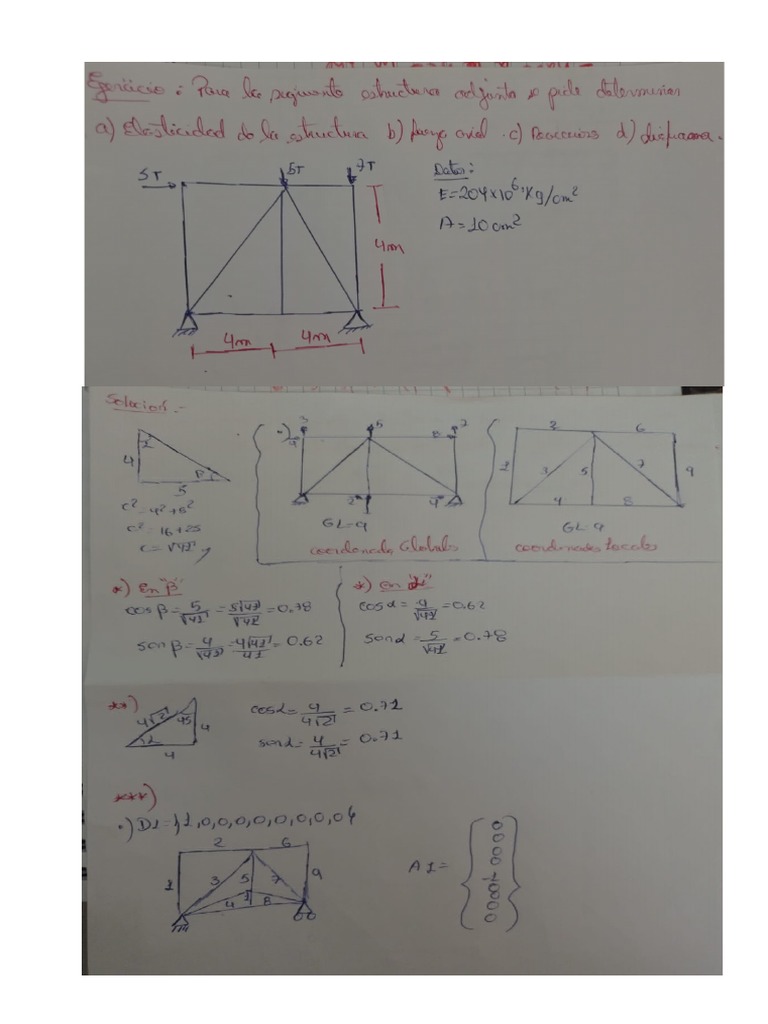 Ejercicio: Para la siguiente estructura adjunta se pide determinar
a) Elasticidad de la estructura b) fuerza axial c) Reacciones d) diagrama.
5T 5T 7T
Datos:
E=204x10⁶ Kg/cm²
A=10cm²
4m
4m 4m
Solución.-
4
5
β
c²=4²+5²
c²=16+25
c=√41
3 5 7
8
2 4
GL=9
coordenadas Globales
2 6
1 3 5 7 9
4 8
GL=9
coordenadas Locales
*) En "β"
cos β=5/√41=5√41/√41=0.78
sen β=4/√41=4√41/41=0.62
*) en "α"
cosα=4/√41=0.62
senα=5/√41=0.78
**)
4√2 45 4
α
4
cosα=4/4√2=0.71
senα=4/4√2=0.71
***)
•) D1={1,0,0,0,0,0,0,0,0}
2 6
1 3 5 7 9
4 1 8
A1={0 0 0 0 1 0 0 0 0}